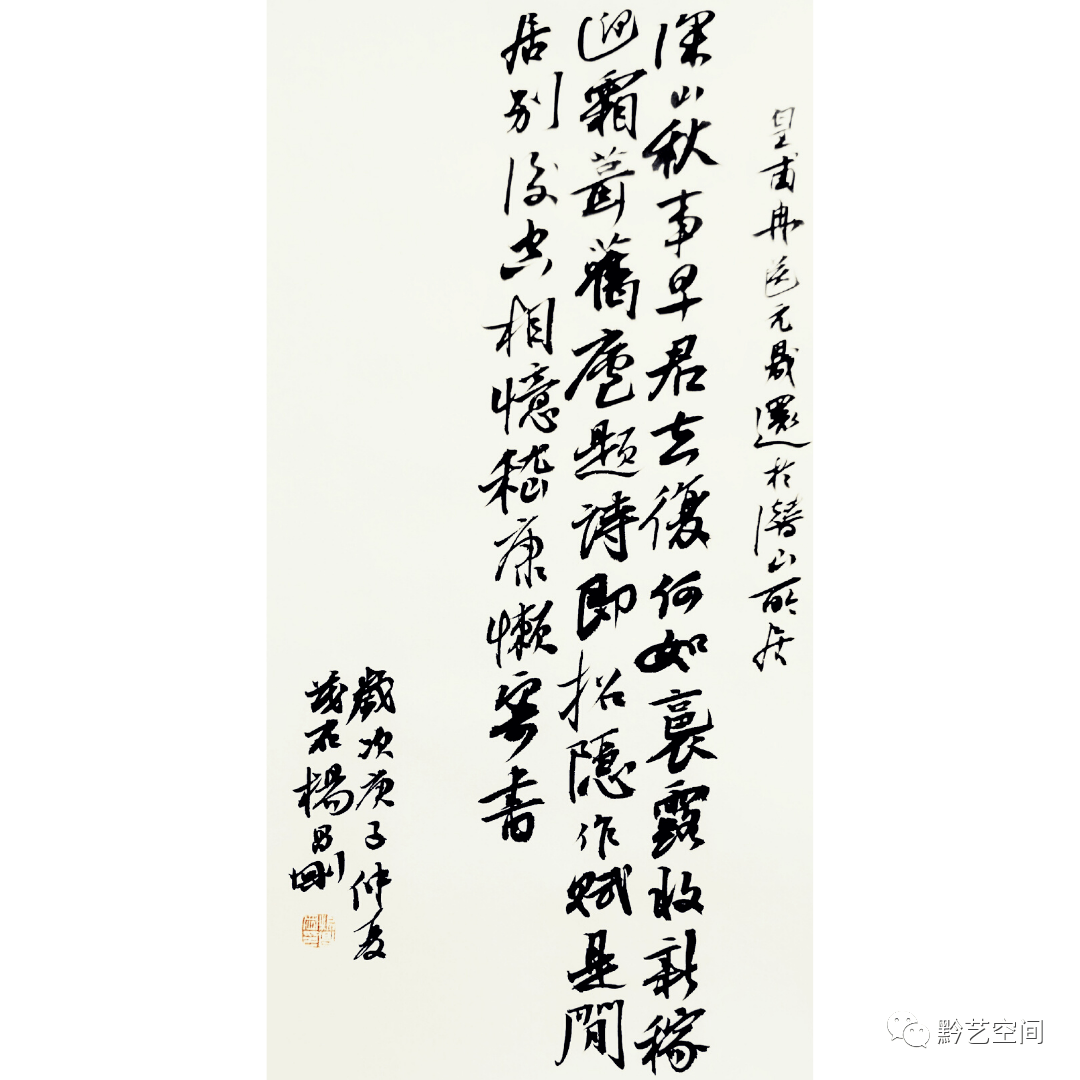 皇甫冉送元晟還於潛山所居
深山秋事早君去復何如裛露收新稼
迎寒葺舊廬題詩即招隱作賦是閒
居別後空相憶嵇康懶寄書
歲次庚子仲夏
茂石楊昌剛
黔艺空间